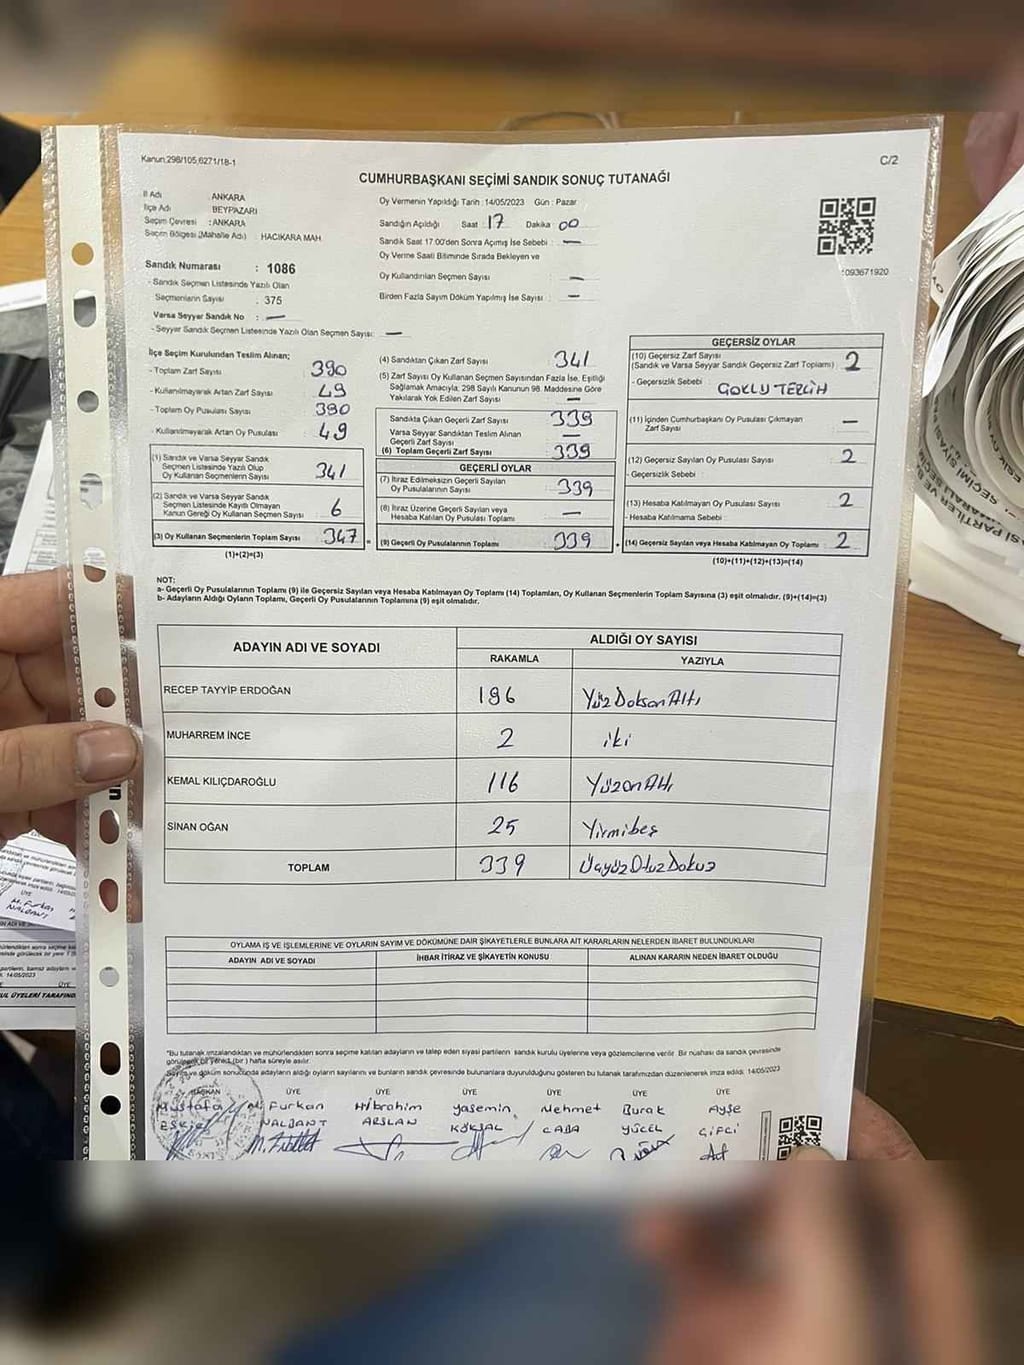 Kanun:298/105,6271/18-1
C/2
CUMHURBAŞKANI SEÇİMİ SANDIK SONUÇ TUTANAĞI
İl Adı : ANKARA
İlçe Adı : BEYPAZARI
Seçim Çevresi : ANKARA
Seçim Bölgesi (Mahalle Adı) : HACIKARA MAH.
Sandık Numarası : 1086
- Sandık Seçmen Listesinde Yazılı Olan
Seçmenlerin Sayısı : 375
Varsa Seyyar Sandık No : —
- Seyyar Sandık Seçmen Listesinde Yazılı Olan Seçmen Sayısı: —
Oy Vermenin Yapıldığı Tarih :14/05/2023 Gün : Pazar
Sandığın Açıldığı Saat : 17 Dakika : 00
Sandık Saat 17:00'den Sonra Açımış İse Sebebi : —
Oy Verme Saati Bitiminde Sırada Bekleyen ve
Oy Kullandırılan Seçmen Sayısı : —
Birden Fazla Sayım Döküm Yapılmış İse Sayısı : —
:093671920
İlçe Seçim Kurulundan Teslim Alınan;
- Toplam Zarf Sayısı : 390
- Kullanılmayarak Artan Zarf Sayısı : 49
- Toplam Oy Pusulası Sayısı : 390
- Kullanılmayarak Artan Oy Pusulası : 49
(1) Sandık ve Varsa Seyyar Sandık
Seçmen Listesinde Yazılı Olup
Oy Kullanan Seçmenlerin Sayısı : 341
(2) Sandık ve Varsa Seyyar Sandık
Seçmen Listesinde Kayıtlı Olmayan
Kanun Gereği Oy Kullanan Seçmen Sayısı : 6
(3) Oy Kullanan Seçmenlerin Toplam Sayısı : 347 =
(1)+(2)=(3)
(4) Sandıktan Çıkan Zarf Sayısı : 341
(5) Zarf Sayısı Oy Kullanan Seçmen Sayısından Fazla İse, Eşitliği
Sağlamak Amacıyla; 298 Sayılı Kanunun 98. Maddesine Göre
Yakılarak Yok Edilen Zarf Sayısı : —
Sandıkta Çıkan Geçerli Zarf Sayısı : 339
Varsa Seyyar Sandıktan Teslim Alınan
Geçerli Zarf Sayısı : —
(6) Toplam Geçerli Zarf Sayısı : 339
GEÇERLİ OYLAR
(7) İtiraz Edilmeksizin Geçerli Sayılan
Oy Pusulalarının Sayısı : 339
(8) İtiraz Üzerine Geçerli Sayılan veya
Hesaba Katılan Oy Pusulası Toplamı : —
(9) Geçerli Oy Pusulalarının Toplamı : 339 +
GEÇERSİZ OYLAR
(10) Geçersiz Zarf Sayısı
(Sandık ve Varsa Seyyar Sandık Geçersiz Zarf Toplamı) : 2
- Geçersizlik Sebebi :
(11) İçinden Cumhurbaşkanı Oy Pusulası Çıkmayan
Zarf Sayısı : —
(12) Geçersiz Sayılan Oy Pusulası Sayısı : 2
- Geçersizlik Sebebi :
(13) Hesaba Katılmayan Oy Pusulası Sayısı : 2
- Hesaba Katılmama Sebebi :
(14) Geçersiz Sayılan veya Hesaba Katılmayan Oy Toplamı : 2
(10)+(11)+(12)+(13)=(14)
NOT:
a- Geçerli Oy Pusulalarının Toplamı (9) ile Geçersiz Sayılan veya Hesaba Katılmayan Oy Toplamı (14) Toplamları, Oy Kullanan Seçmenlerin Toplam Sayısına (3) eşit olmalıdır. (9)+(14)=(3)
b- Adayların Aldığı Oyların Toplamı, Geçerli Oy Pusulalarının Toplamına (9) eşit olmalıdır.
ADAYIN ADI VE SOYADI
ALDIĞI OY SAYISI
RAKAMLA YAZIYLA
RECEP TAYYİP ERDOĞAN 196 YüzDoksanAltı
MUHARREM İNCE 2 iki
KEMAL KILIÇDAROĞLU 116 YüzonAltı
SİNAN OĞAN 25 Yirmibeş
TOPLAM 339 ÜçyüzOtuzDokuz
OYLAMA İŞ VE İŞLEMLERİNE VE OYLARIN SAYIM VE DÖKÜMÜNE DAİR ŞİKAYETLERLE BUNLARA AİT KARARLARIN NELERDEN İBARET BULUNDUKLARI
ADAYIN ADI VE SOYADI İHBAR İTİRAZ VE ŞİKAYETİN KONUSU ALINAN KARARIN NEDEN İBARET OLDUĞU
*Bu tutanak imzalandıktan ve mühürlendikten sonra seçime katılan adayların ve talep eden siyasi partilerin sandık kurulu üyelerine veya gözlemcilerine verilir. Bir nüshası da sandık çevresinde
görülecek bir yere (bir) hafta süreyle asılır.
Sayım ve döküm sonucunda adayların aldığı oyların sayılarını ve bunların sandık çevresinde bulunanlara duyurulduğunu gösteren bu tutanak tarafımızdan düzenlenerek imza edildi. 14/05/2023
BAŞKAN ÜYE ÜYE ÜYE ÜYE ÜYE ÜYE
Mustafa M. Furkan H.İbrahim Yasemin Mehmet Burak Ayşe
NALBANT ARSLAN KÖKSAL CABA YÜCEL ÇİFCİ
M. Furkan
NALBANT
14/05/2023